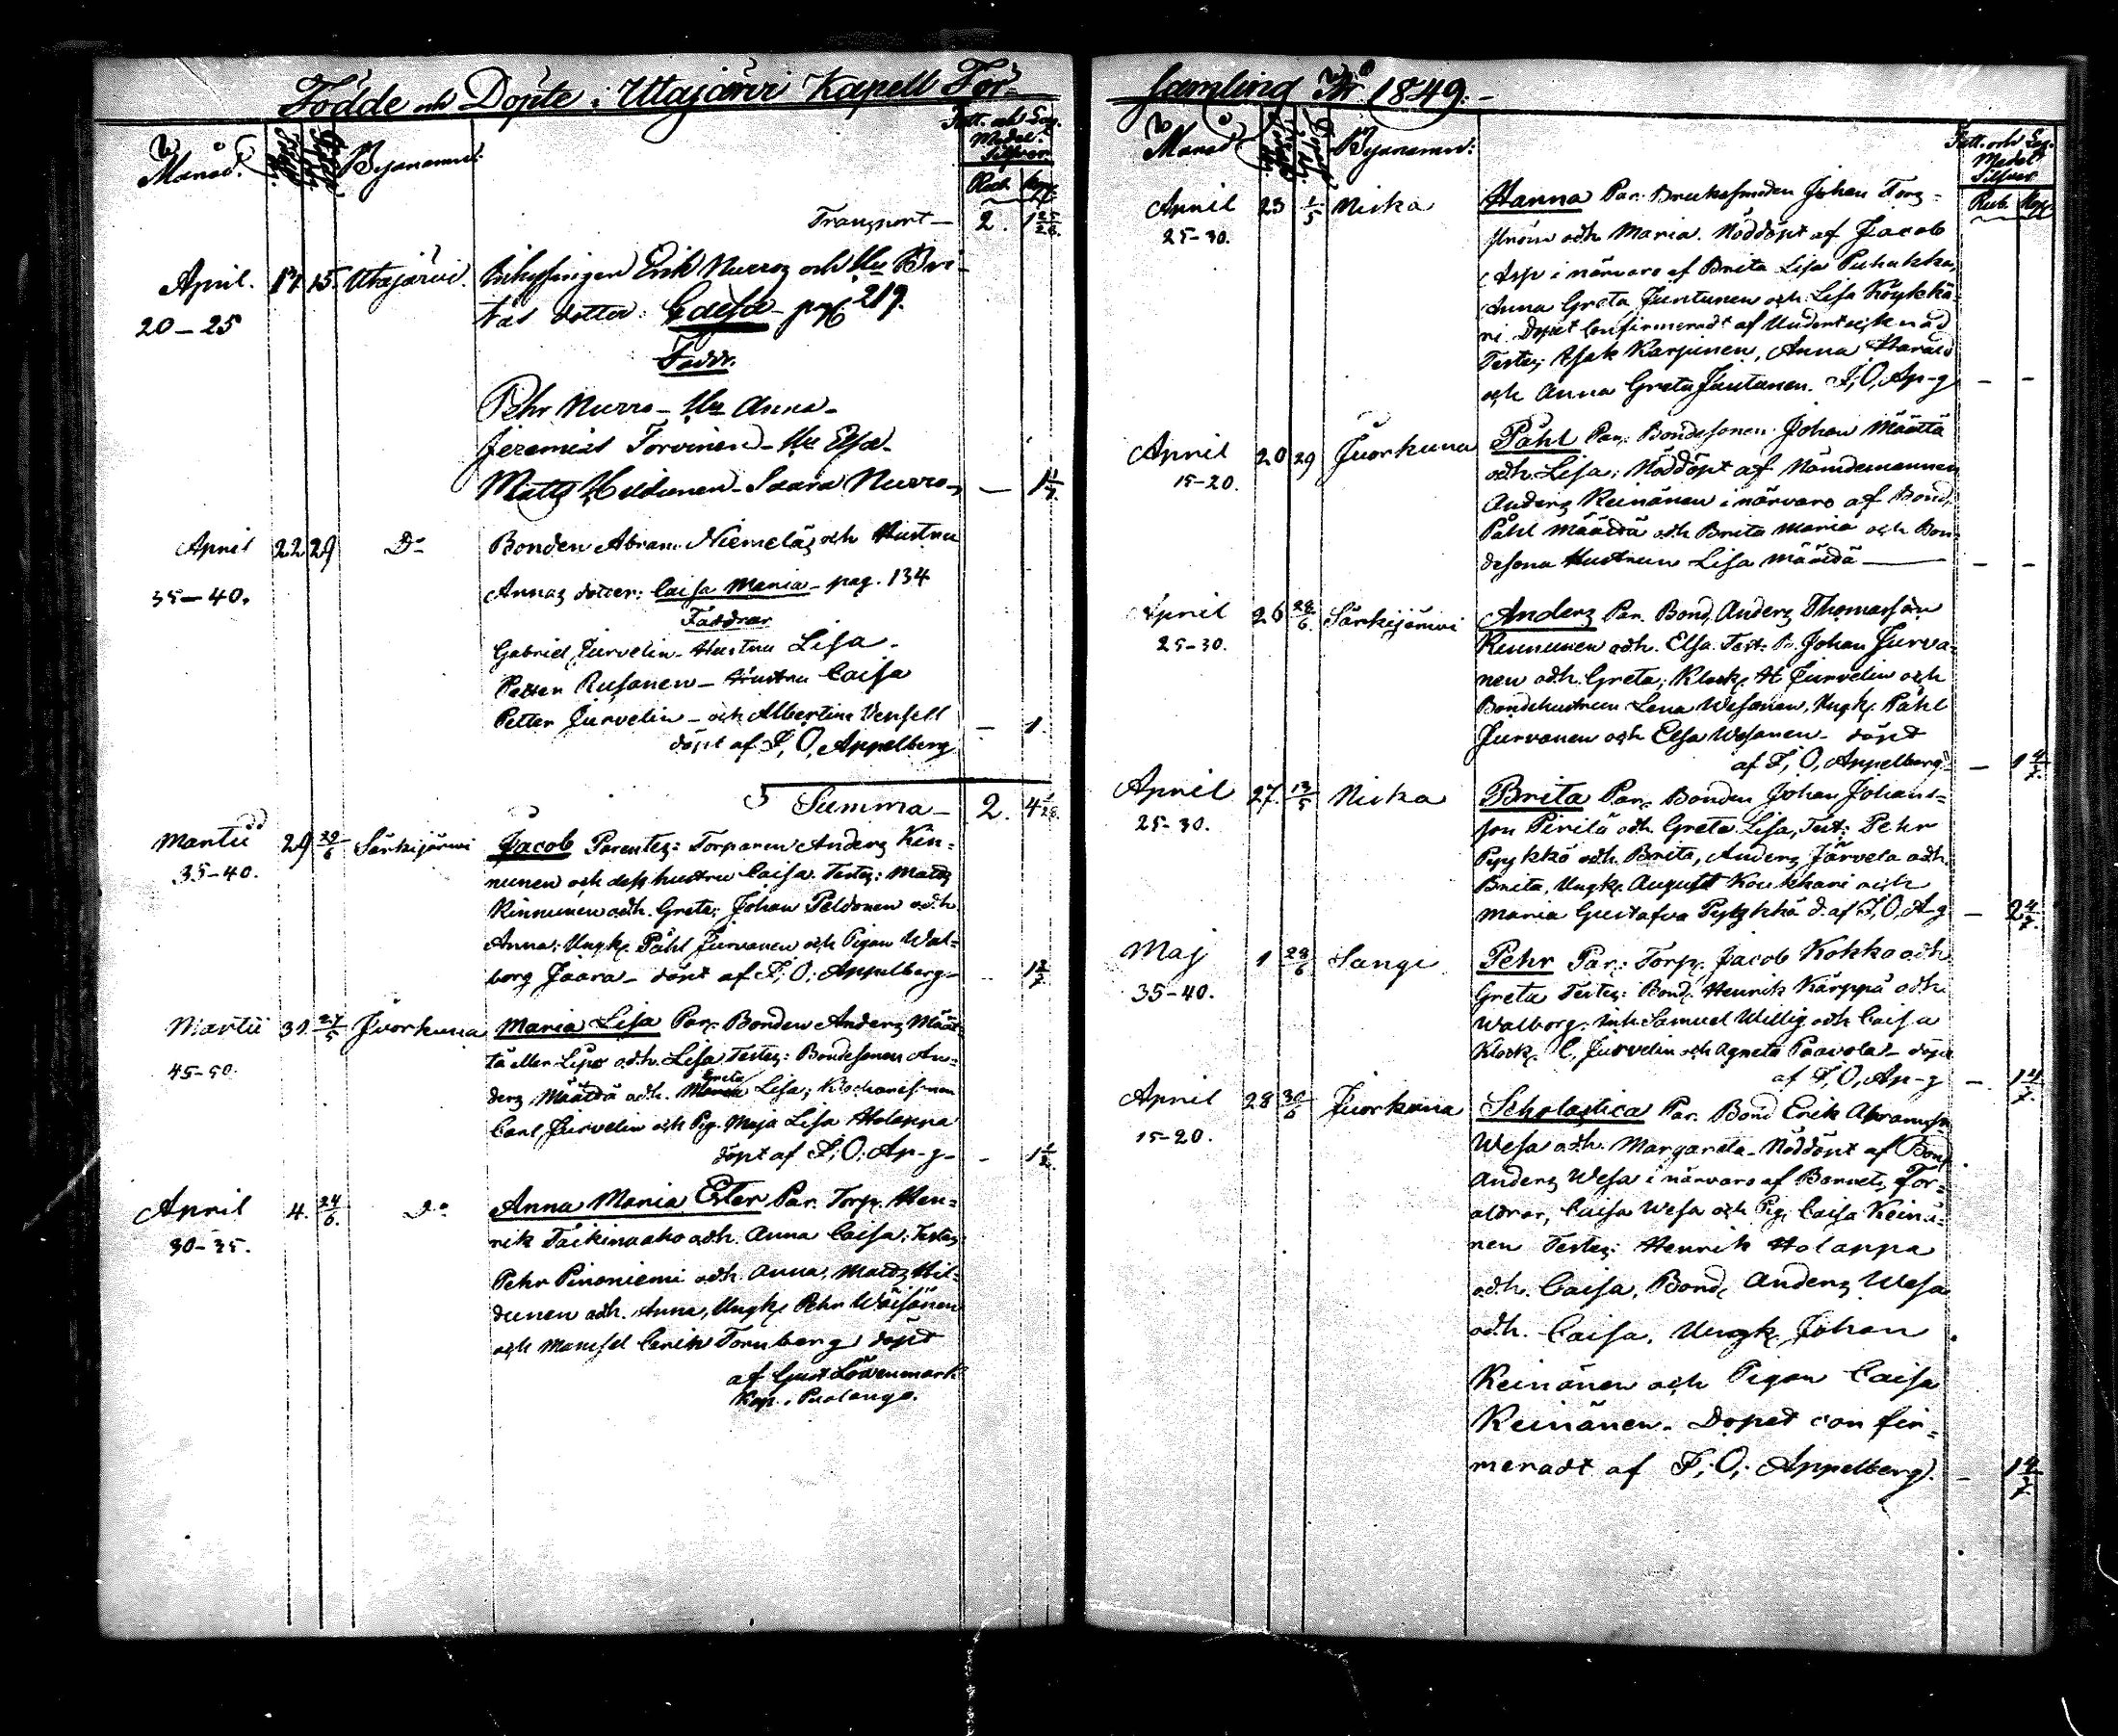 Födde och Döpte i Utajärvi Kapell För=
Månad. Byanamn:
Fatt. och Seg. Medel. Silfver
Rub. Kop.
Transport — 2. 1 25/28
April. 17 15 Utajärvi. Inhysingen Erik Nurros och Hu Bri-
20–25 tas dotter: Caisa – pag. 219.
Faddr.
Pehr Nurro – Hu Anna –
Jeremias Torvinen – Hu Elsa –
Matts Hildunen – Saara Nurro – — 1 1/7
April 22 29 Do Bonden Abram Niemeläs och Hustru
35–40. Annas dotter: Caisa Maria – pag. 134
Faddrar
Gabriel Jurvelin – Hustru Lisa –
Petter Rusanen – Hustru Caisa
Petter Jurvelin – och Albertina Vensell
döpt af F. O. Appelberg — 1.
Summa – 2. 4 1/28
Martii 29 29/6 Särkijärvi Jacob Parentes: Torparen Anders Kin=
35–40. nunen och dess hustru Caisa. Testes: Matts
Kinnunen och h. Greta; Johan Peldonen och h.
Anna; Ungk. Påhl Jurvanen och Pigan Wal=
borg Jaara – döpt af F. O. Appelberg –
Martii 30 27/5 Juorkuna Maria Lisa Par. Bonden Anders Määt
45–50. tä eller Lipo och h. Lisa Testes: Bondesonen An=
ders Määttä och h. Greta Lisa; Klockaresonen
Carl Jurvelin och Pig. Maja Lisa Holappa
döpt af F. O. Ap–g –
April 4. 24/6. Do Anna Maria Ester Par. Torp. Hen=
30–35. rik Täikinaaho och h. Anna Caisa; Testes
Pehr Pinoniemi och h. Anna, Matts Hil=
dunen och h. Anna, Ungk. Pehr Wäisänen
och Mamsel Carin Tornberg döpt
af Gust Löwenmark
Kap. i Puolango.
samling År 1849. –
Månad Byanamn:
Fatt. och Seg. Medel Silfver
Rub. Kop.
April 23 1/5 Niska Hanna Par. Bruksmeden Johan Fors=
25–30. ström och h. Maria. Nöddöpt af Jacob
Asp i närvaro af Brita Lisa Puhakka,
Anna Greta Juntunen och Lisa Köykkä
ri. Dopet Confirmeradt af Undertecknad
Testes; Isak Karjunen, Anna Harald
och Anna Greta Juntunen. F. O. Ap–g — –
April 20 29 Juorkuna Påhl Par. Bondesonen Johan Määttä
15–20. och h. Lisa; Nöddöpt af Nämdemannen
Anders Keinänen i närvaro af Bond.
Påhl Määttä och h. Brita Maria och Bon
desona Hustrun Lisa Määttä — – –
April 26 28/6. Särkijärvi Anders Par. Bond. Anders Thomasson
25–30. Kinnunen och h. Elsa. Test. Johan Jurva=
nen och h. Greta; Klock. H Jurvelin och
Bondehustrun Lena Wesanen, Ungk. Påhl
Jurvanen och Elsa Wesanen – döpt
af F. O. Appelberg — 1 4/7.
April 27. 13/5 Niska Brita Par. Bonden Johan Johans=
25–30. son Pirilä och h. Greta Lisa, Test: Pehr
Pyykkö och h. Brita, Anders Järvela och h.
Brita, Ungk. August Koukkari och
Maria Gustafva Pyykkö d. af F. O. A–g — 2 4/7.
Maj 1 29/6 Sangi Pehr Par: Torp. Jacob Kokko och h
35–40. Greta Testes: Bond. Henrik Kärppä och h.
Walborg; Inh. Samuel Willig och h. Caisa
Klock. C. Jurvelin och Agneta Paavola – döpt
af F. O. Ap–g — 1 4/7.
April 28 30/6 Juorkuna Scholastica Par. Bond Erik Abramsson
15–20. Wesa och h. Margareta – Nöddöpt af Bond
Anders Wesa i närvaro af Barnets För=
äldrar, Caisa Wesa och Pig. Caisa Keinä=
nen Testes: Henrik Holappa
och h. Caisa, Bond. Anders Wesa
och h. Caisa, Ungk. Johan
Keinänen och Pigan Caisa
Keinänen. Dopet confir=
meradt af F. O. Appelberg. – 1 4/7.